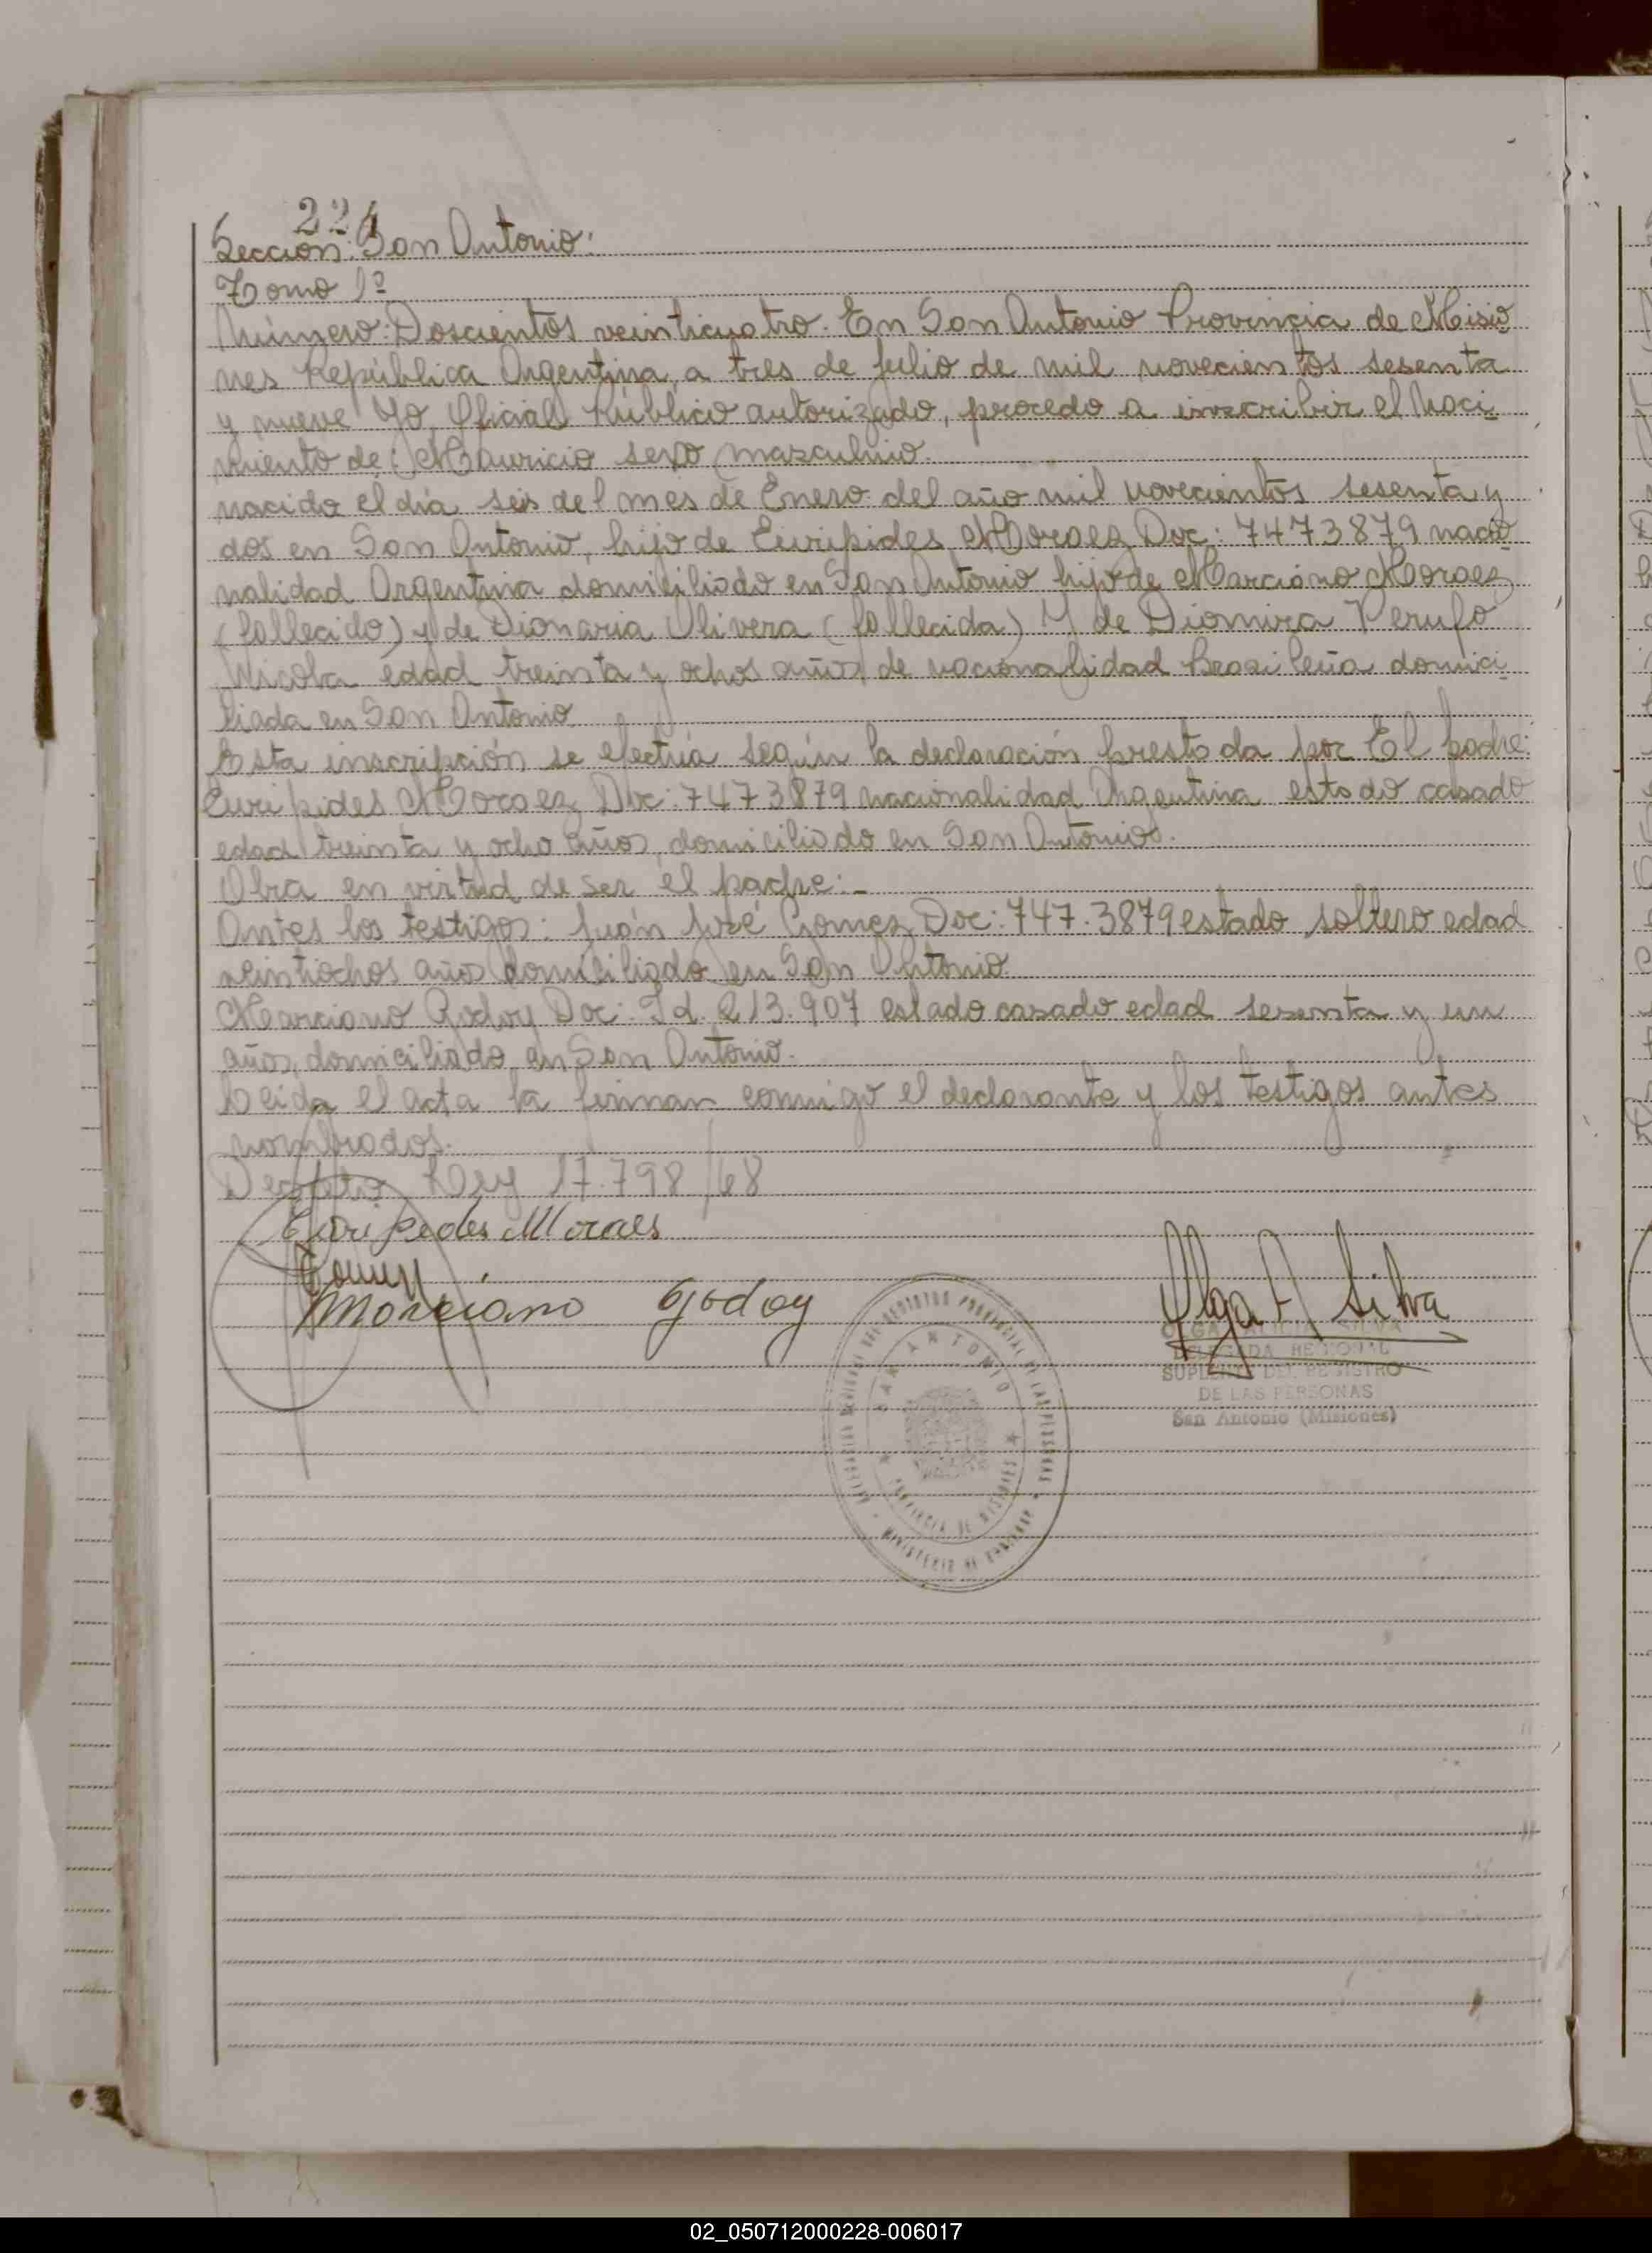 224
Sección: San Antonio:
Tomo 1º
Número: Doscientos veinticuatro. En San Antonio Provincia de Misio
nes República Argentina, a tres de julio de mil novecientos sesenta
y nueve Yo, Oficial Público autorizado, procedo a inscribir el Naci
miento de: Mauricio sexo masculino.
nacido el día seis del mes de Enero del año mil novecientos sesenta y
dos en San Antonio, hijo de Euripides Moraez Doc: 7473879 nacio
nalidad Argentina domiciliado en San Antonio hijo de Marciano Moraez
(fallecido) y de Dionaria Olivera (fallecida) Y de Diomira Perufo
Nicola edad treinta y ochos años de nacionalidad Brasileña domici
liada en San Antonio
Esta inscripción se efectúa según la declaración prestada por El padre:
Euripides Moraez Doc: 7473879 nacionalidad Argentina estado casado
edad treinta y ocho años, domiciliado en San Antonio.
Obra en virtud de ser el padre:_
Antes los testigos: Juán José Gomez Doc: 747.3879 estado soltero edad
veintiochos años domiciliado en San Antonio
Marciano Godoy Doc: Id. 213.907 estado casado edad sesenta y un
años, domiciliado en San Antonio.
Leida el acta la firman conmigo el declarante y los testigos antes
nombrados.
Decreto Ley 17.798/68
Euripedes Moraes
Marciano Godoy
Olga A Silva
OLGA ALICIA SILVA
DELEGADA REGIONAL
SUPLENTE DEL REGISTRO
DE LAS PERSONAS
San Antonio (Misiones)
REGISTRO PROVINCIAL DE LAS PERSONAS
SAN ANTONIO
PROVINCIA DE MISIONES
MINISTERIO DE GOBIERNO
02_050712000228-006017